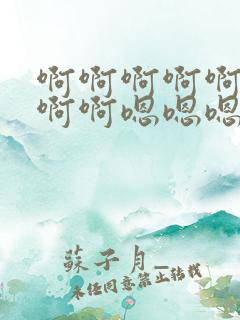 啊啊啊啊啊
啊啊嗯嗯嗯
蘇子月_
未经同意禁止转载